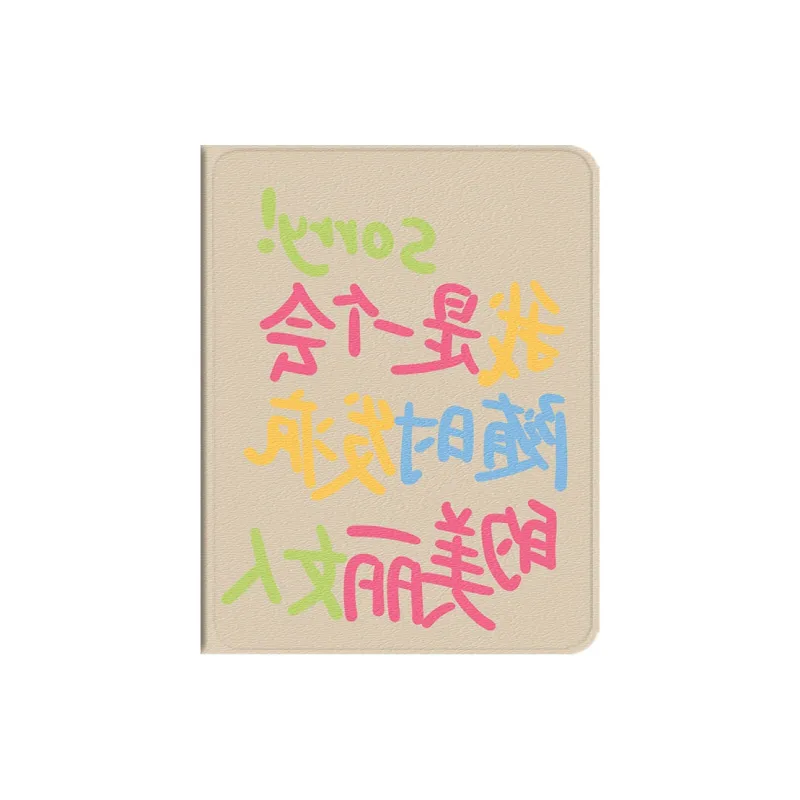 sorry!
我是一个会
随时发疯
的美丽女人